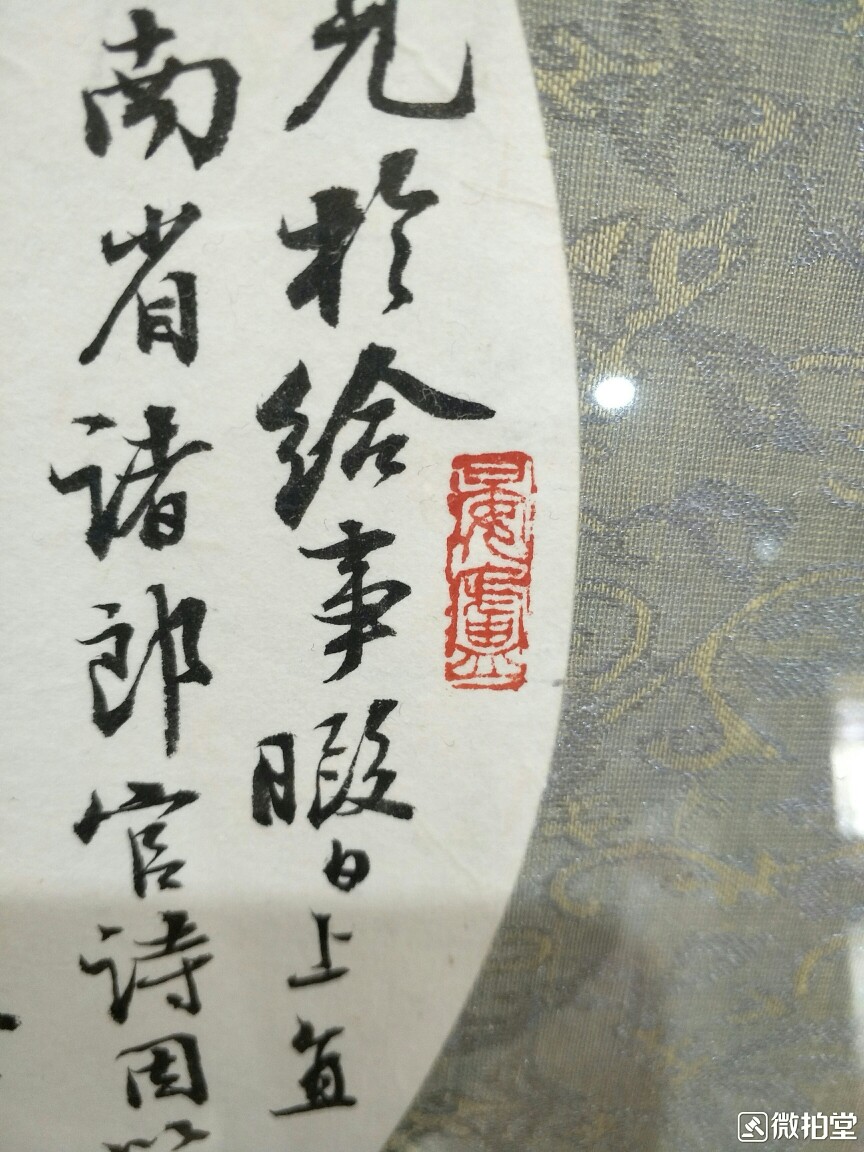 見於給事暇日上直
南省諸郎官詩因以
微拍堂